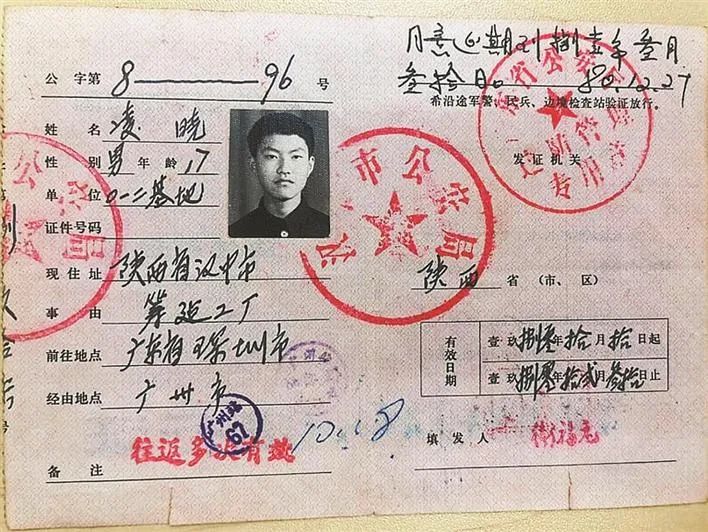 公字第8——96号
姓名 凌晓
性别 男 年龄 17
单位 0一二基地
证件号码
现住址 陕西省汉中市
事由 筹建工厂
前往地点 广东省深圳市
经由地点 广州市
备注 往返多次有效
广州站
67
10.18
同意延期到捌壹年叁月
叁拾日。 80.12.27
希沿途军警、民兵、边境检查站验证放行。
发证机关
省公安
边防管理
专用章
市公安局
公
局
陕西省(市、区)
有效日期
壹玖捌零年拾月拾日起
壹玖捌零年拾贰月叁拾日止
填发人